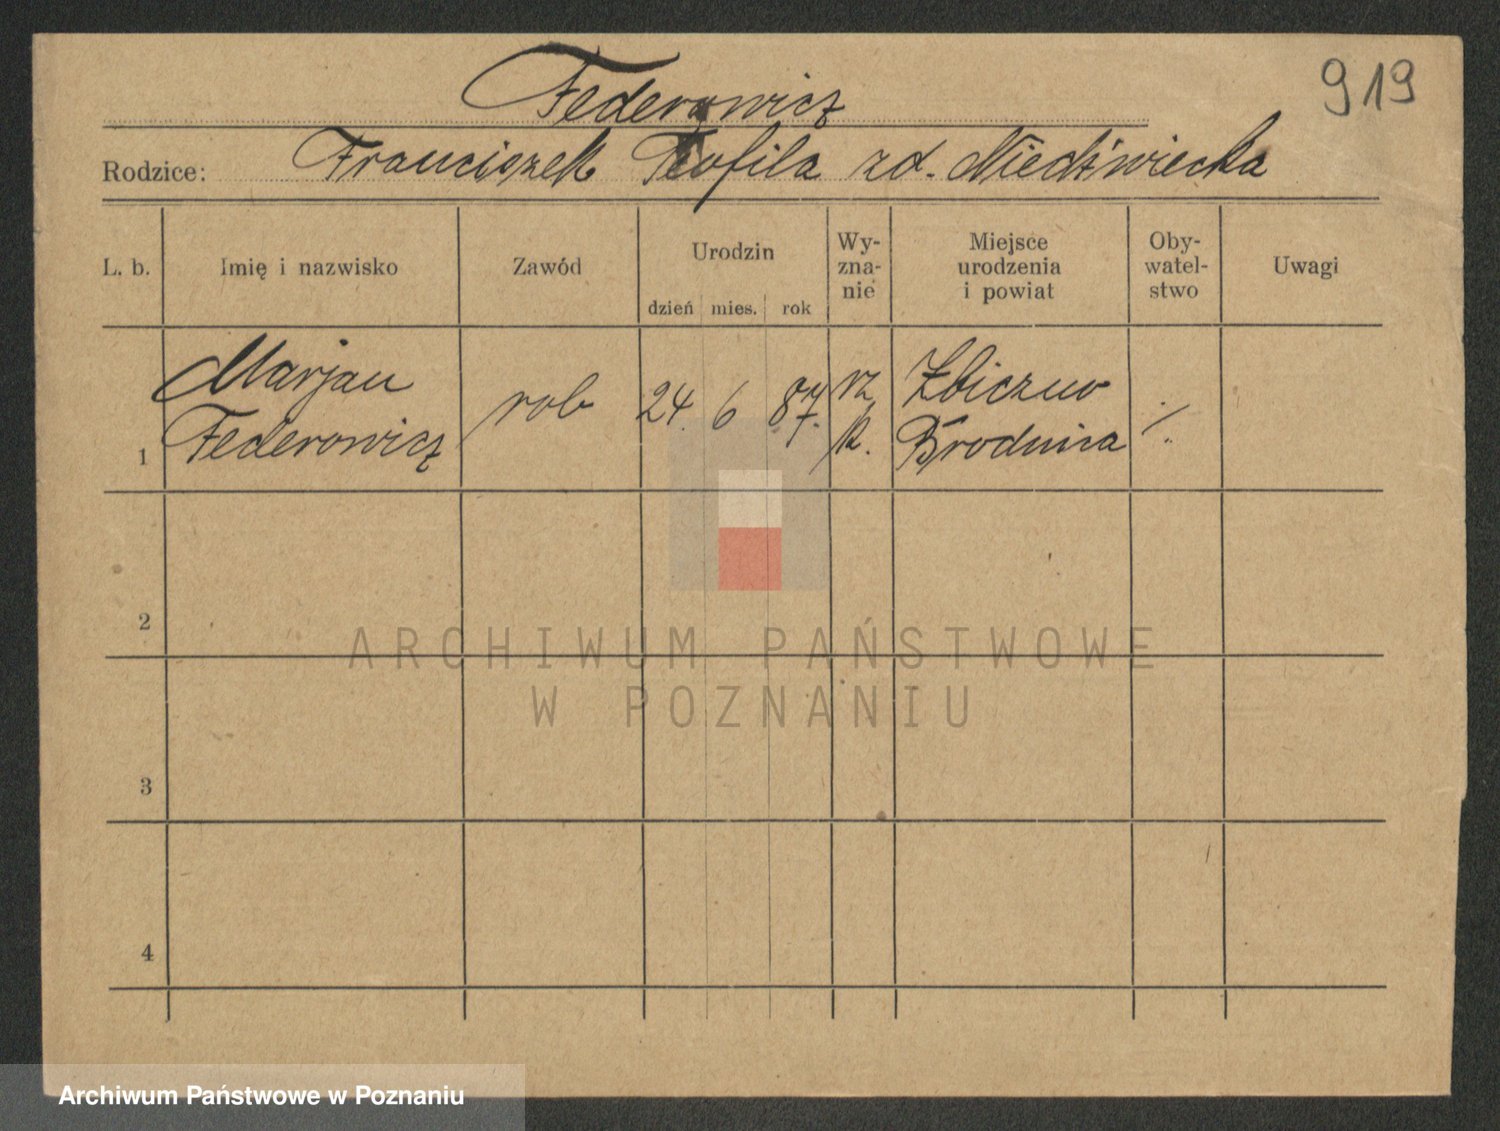 919
Federowicz
Rodzice: Franciszek Teofila zd. Niedźwiecka
L. b. Imię i nazwisko Zawód Urodzin dzień mies. rok Wy-zna-nie Miejsce urodzenia i powiat Oby-watel-stwo Uwagi
Marjan rz Zbiczno
rob 24. 6 87.
1 Federowicz k. Brodnica ./.
2
ARCHIWUM PAŃSTWOWE
W POZNANIU
3
4
Archiwum Państwowe w Poznaniu